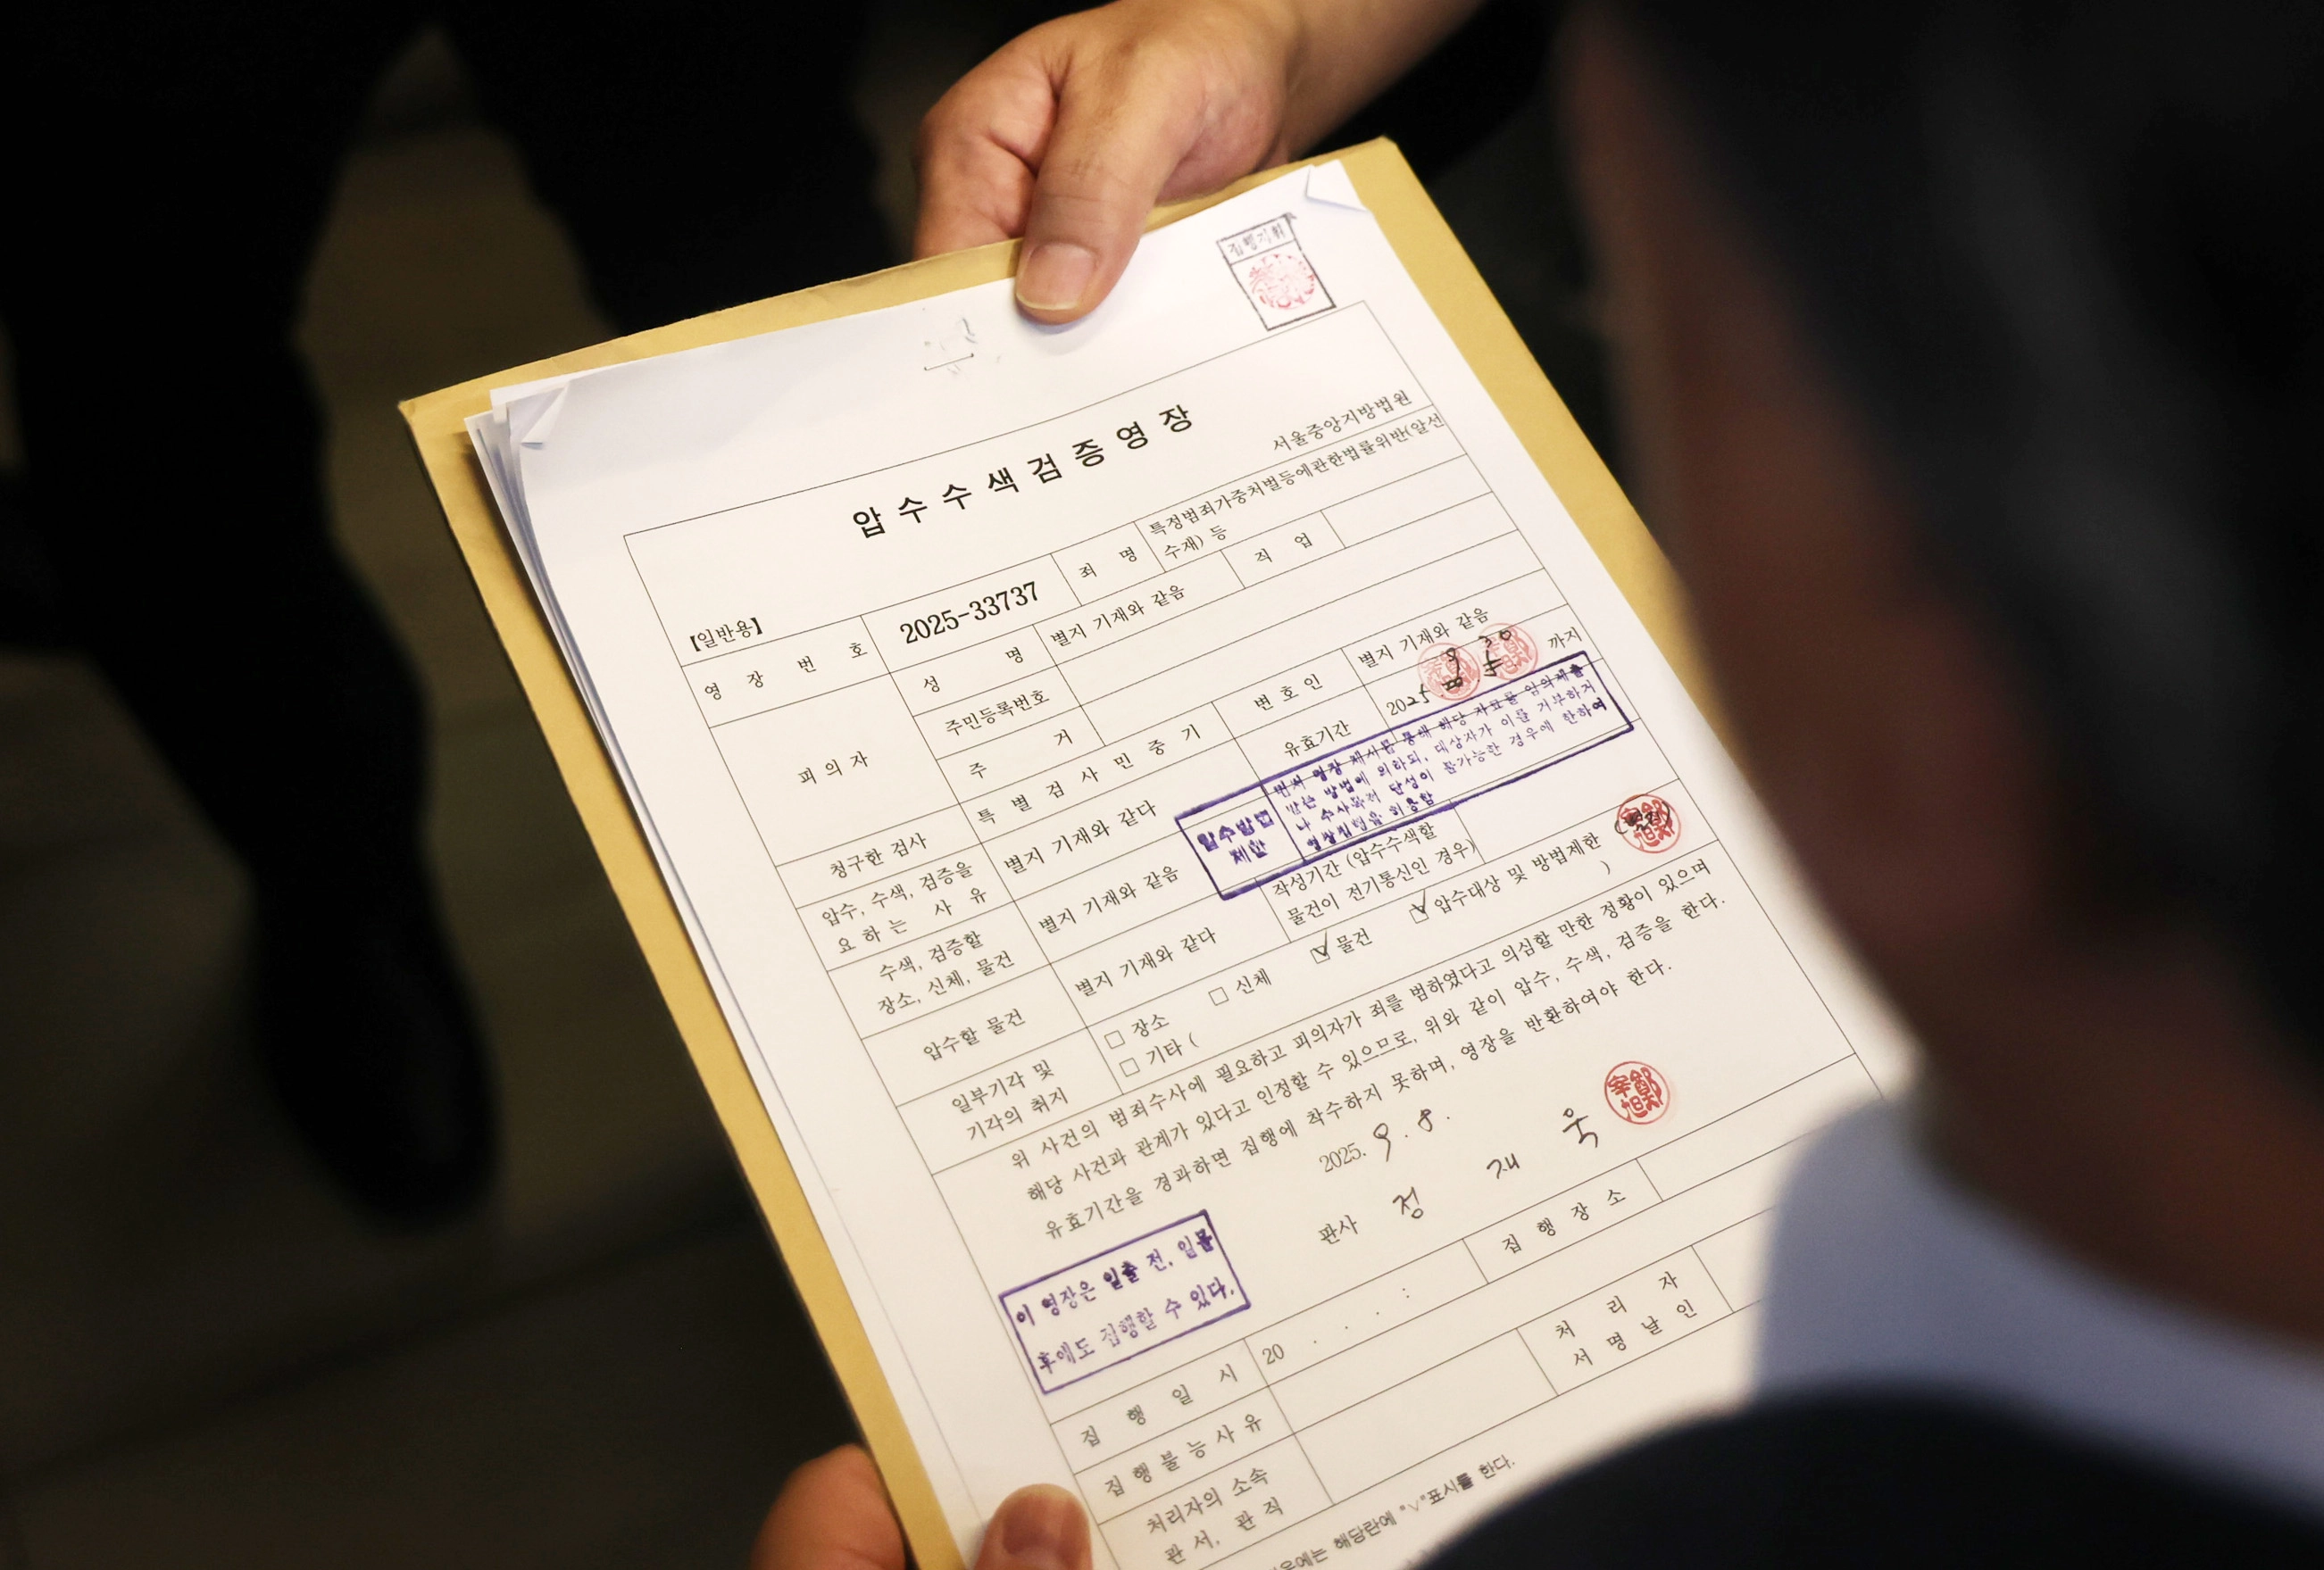 집행지휘
압수수색검증영장
서울중앙지방법원
【일반용】
영장번호 2025-33737 죄명 특정범죄가중처벌등에관한법률위반(알선
수재) 등
피의자 성명 별지 기재와 같음 직업
주민등록번호
주거
청구한 검사 특별검사 민중기 변호인 별지 기재와 같음
압수, 수색, 검증을
요하는 사유 별지 기재와 같다 유효기간 2025 9 30 까지
수색, 검증할
장소, 신체, 물건 별지 기재와 같음
압수방법
제한
범위 영장 제시를 통해 해당 자료를 임의제출
받는 방법에 의하되, 대상자가 이를 거부하거
나 수사목적 달성이 불가능한 경우에 한하여
영장집행을 허용함
압수할 물건 별지 기재와 같다 작성기간 (압수수색할
물건이 전기통신인 경우)
일부기각 및
기각의 취지 □ 장소 □ 신체 ☑ 물건 ☑ 압수대상 및 방법제한
□ 기타 ( )
위 사건의 범죄수사에 필요하고 피의자가 죄를 범하였다고 의심할 만한 정황이 있으며
해당 사건과 관계가 있다고 인정할 수 있으므로, 위와 같이 압수, 수색, 검증을 한다.
유효기간을 경과하면 집행에 착수하지 못하며, 영장을 반환하여야 한다.
2025. 9. 8.
판사 정 재 욱
鄭宰旭
이 영장은 일출 전, 일몰
후에도 집행할 수 있다.
집행일시 20 . . . : 집행장소
집행불능사유
처리자의 소속
관서, 관직 처리자
서명날인
우에는 해당란에 "∨"표시를 한다.